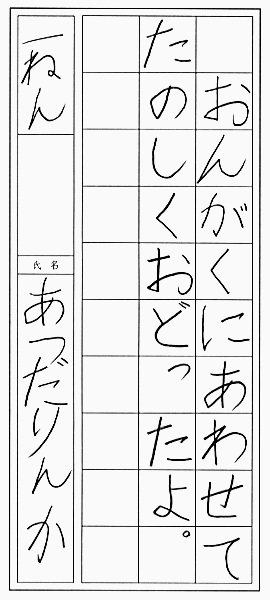 おんがくにあわせて
たのしくおどったよ。
一ねん
氏名
あつだりんか